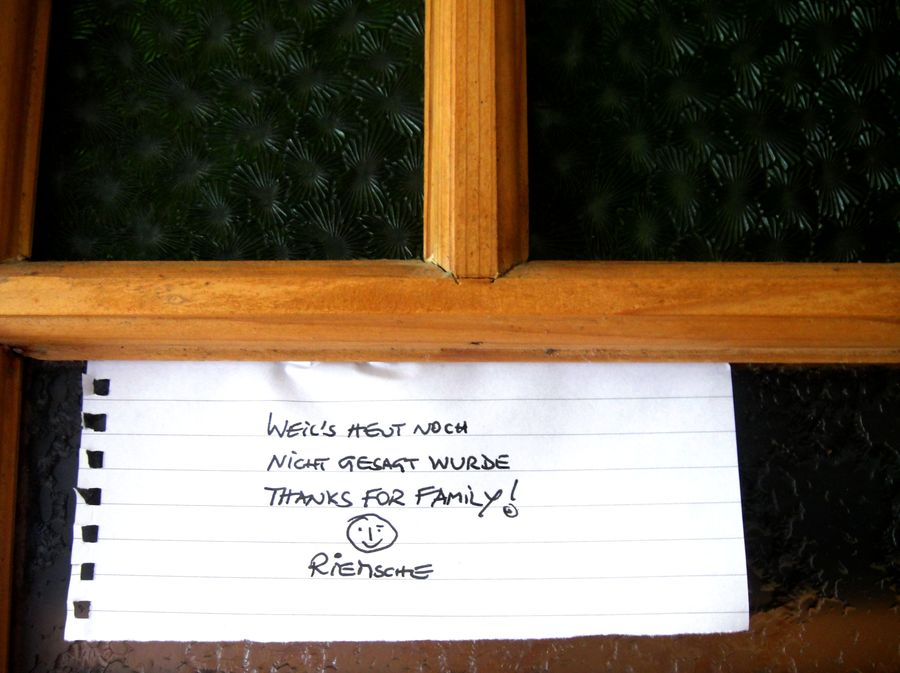 WEIL'S HEUT NOCH
NICHT GESAGT WURDE
THANKS FOR FAMILY!
RIEMSCHE